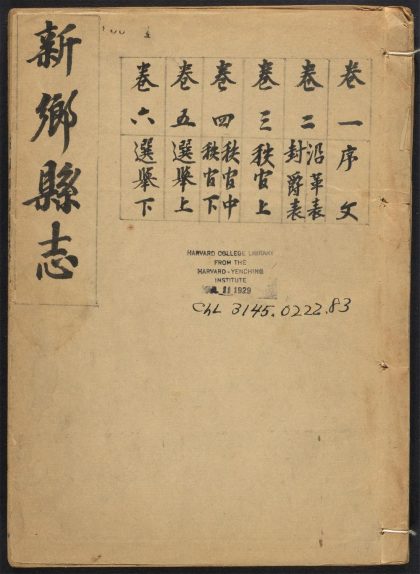 新鄉縣志
卷一 序文
卷二 沿革表 封爵表
卷三 秩官上
卷四 秩官中 秩官下
卷五 選舉上
卷六 選舉下
HARVARD COLLEGE LIBRARY
FROM THE
HARVARD-YENCHING
INSTITUTE
11 1929
ChL 3145.0222.83